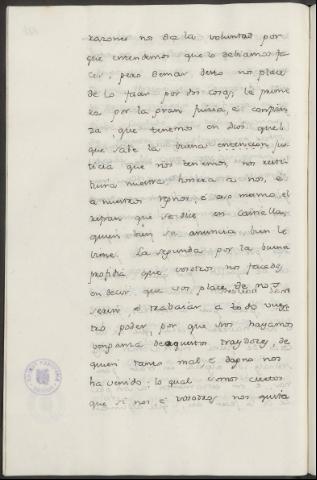 razones nos da la voluntad por
que entendemos que lo debiamos fa
cer; pero demas desto nos place
de lo facer por dos cosas, la prime
ra por la gran fiucia, e confian
za, que tenemos en dios, que el
que sabe la buena entencion jus
ticia que nos tenemos nos resti
tuira nuestra honrra a nos, e
a nuestros regnos, e aso mesmo, el
refran que se dice en Castilla,
quien bien se anuncia, bien le
viene. La segunda por la buena
profidia que vosotros nos facedes
en decir que vos place de nos
servir, e trabajar a todo vues
tro poder, por que nos hayamos
venganza de aquestos traydores, de
quien tanto mal e dapno nos
ha venido: lo qual somos ciertos
que si nos e vosotros nos quita